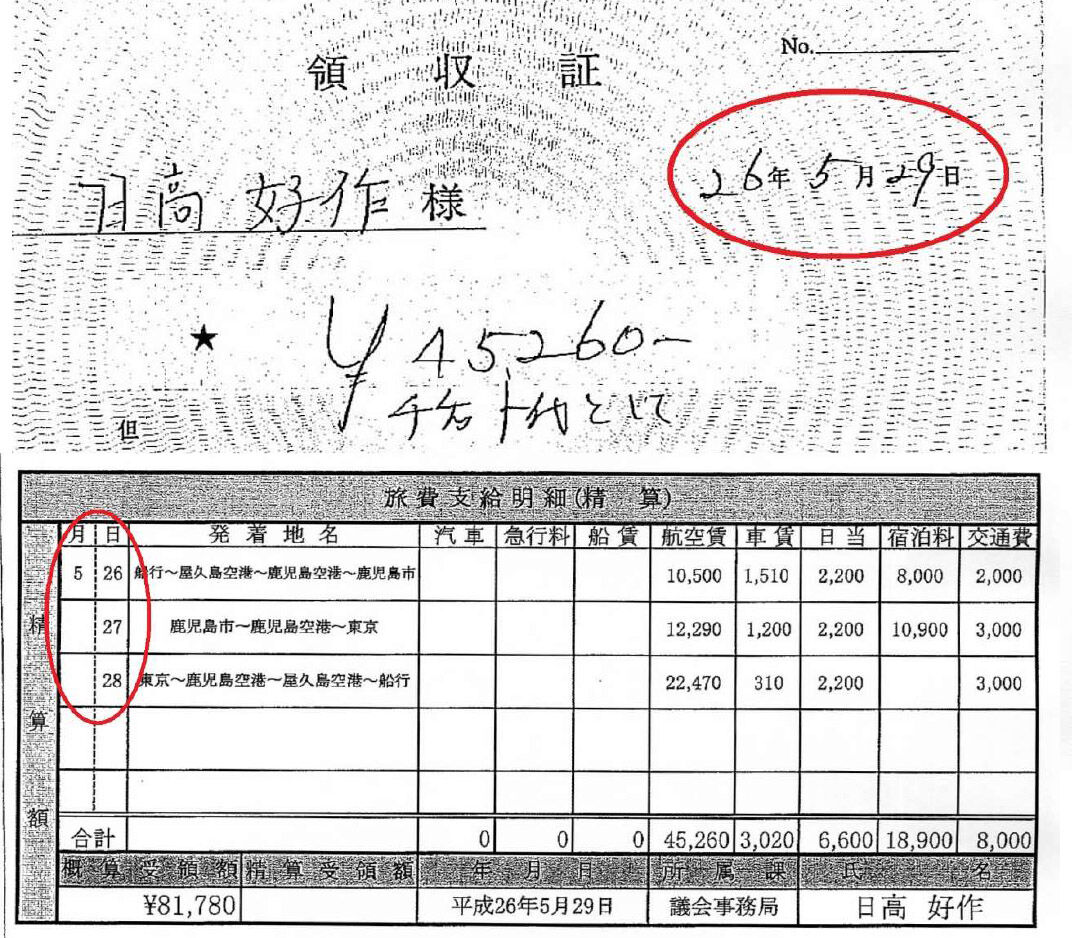 領収証
No.
26年5月29日
日高 好作 様
★ ¥45260-
但 チケット代として
旅費支給明細(精 算)
月 日 発着地名 汽車 急行料 船賃 航空賃 車賃 日当 宿泊料 交通費
5 26 船行～屋久島空港～鹿児島空港～鹿児島市 10,500 1,510 2,200 8,000 2,000
27 鹿児島市～鹿児島空港～東京 12,290 1,200 2,200 10,900 3,000
28 東京～鹿児島空港～屋久島空港～船行 22,470 310 2,200 3,000
精算額
合計 0 0 0 45,260 3,020 6,600 18,900 8,000
概算受領額 精算受領額 年 月 日 所属課 氏 名
¥81,780 平成26年5月29日 議会事務局 日高 好作